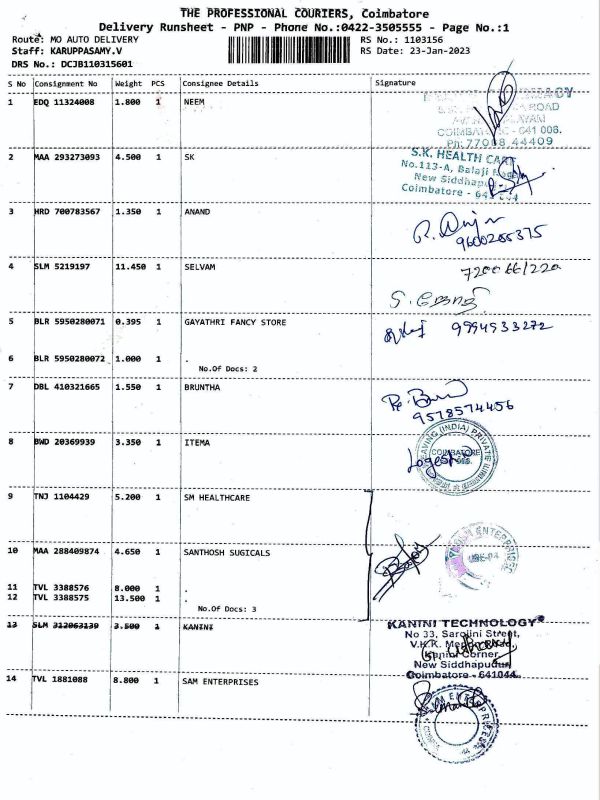 THE PROFESSIONAL COURIERS, Coimbatore
Delivery Runsheet - PNP - Phone No.:0422-3505555 - Page No.:1
Route: MO AUTO DELIVERY RS No.: 1103156
Staff: KARUPPASAMY.V RS Date: 23-Jan-2023
DRS No.: DCJB110315601
S No Consignment No Weight PCS Consignee Details Signature
1 EDQ 11324008 1.800 1 NEEM
ROAD
COIMBA - 641 006.
Ph: 77008 44409
2 MAA 293273093 4.500 1 SK
S.K. HEALTH CARE
No.113-A, Balaji
New Siddhapu
Coimbatore - 641 004
3 HRD 700783567 1.350 1 ANAND
9600265375
4 SLM 5219197 11.450 1 SELVAM
5 BLR 5950280071 0.395 1 GAYATHRI FANCY STORE
9994933272
6 BLR 5950280072 1.000 1 .
No.Of Docs: 2
7 DBL 410321665 1.550 1 BRUNTHA
9578574456
8 BWD 20369939 3.350 1 ITEMA
WEAVING (INDIA) PRIVATE
COIMBATORE
9 TNJ 1104429 5.200 1 SM HEALTHCARE
10 MAA 288409874 4.650 1 SANTHOSH SUGICALS
ENTERPRISES
11 TVL 3388576 8.000 1 .
12 TVL 3388575 13.500 1 .
No.Of Docs: 3
13 SLM 312063139 3.500 1 KANINI
KANINI TECHNOLOGY
No 33, Sarojini Street,
V.H.K.
Kanini Corner
New Siddhapudur
Coimbatore - 641044.
14 TVL 1881088 8.800 1 SAM ENTERPRISES